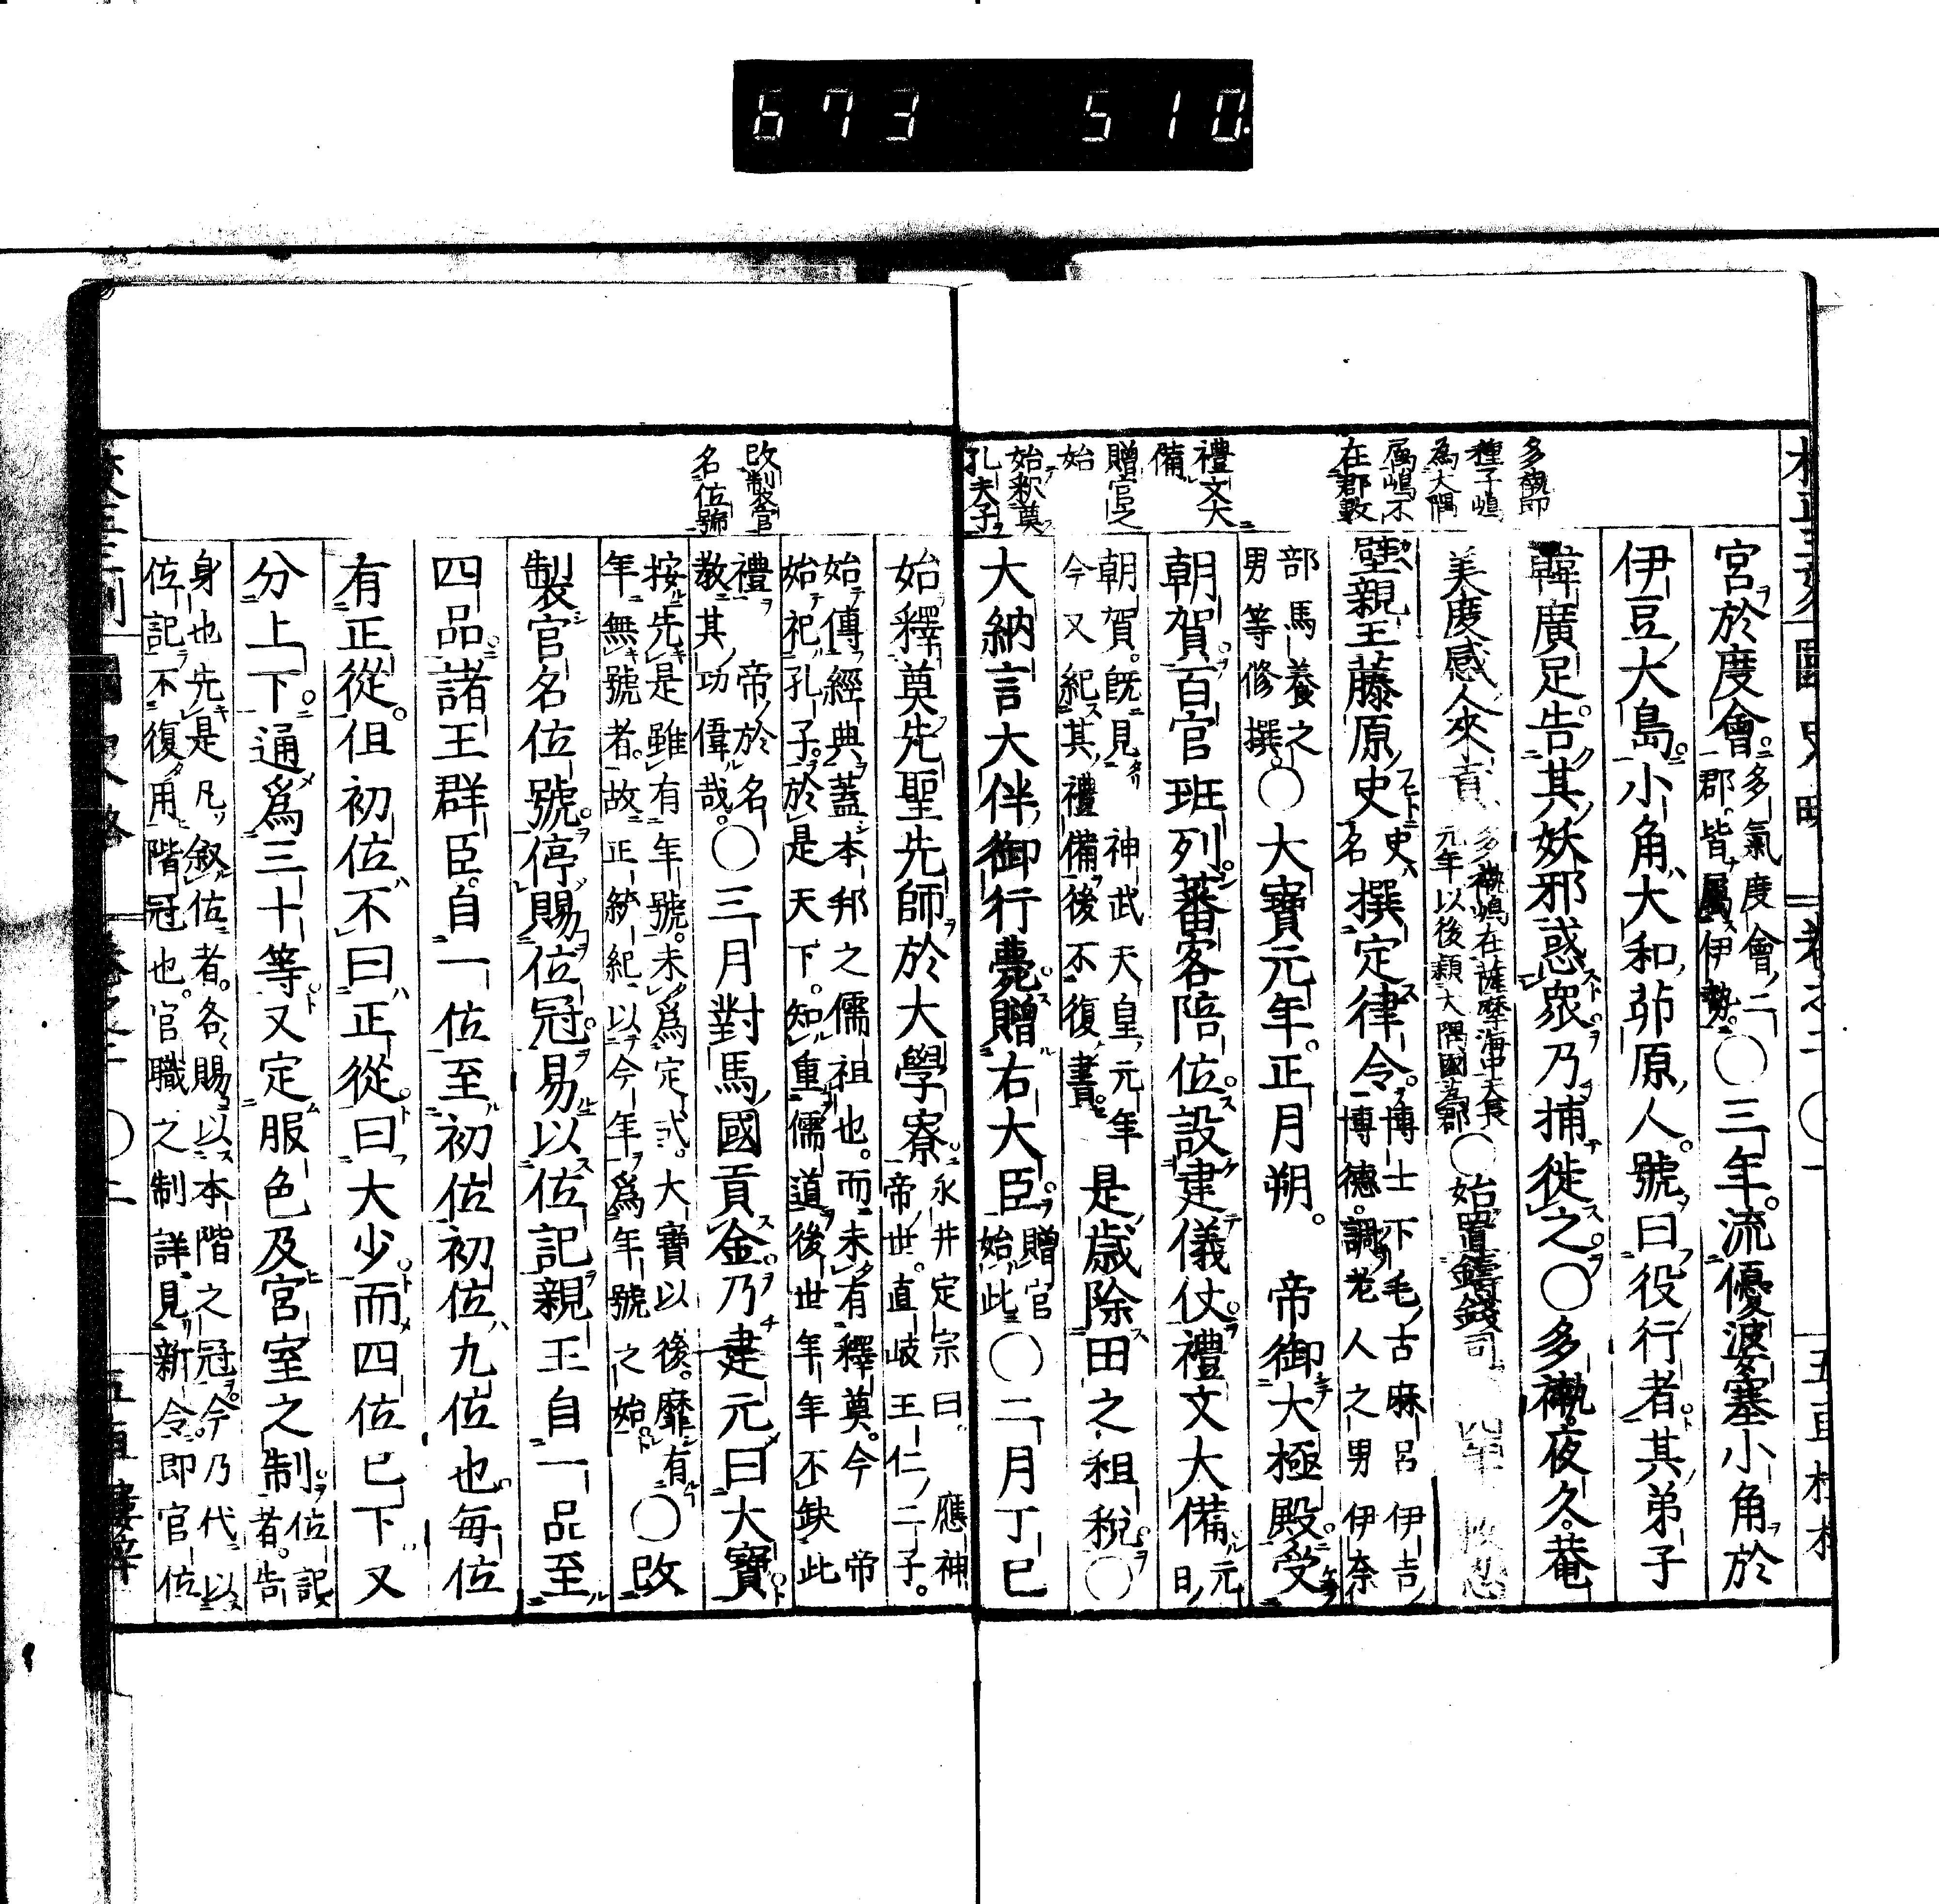 673 510
多褹即
種子嶋
為大隅
属嶋不
在郡數
禮文大
備
贈官之
始
始釈奠
孔夫子
宮於度會多氣度會二郡皆属伊勢〇三年流優婆塞小角於
伊豆大島小角大和茆原人號曰役行者其弟子
韓廣足告其妖邪惑衆乃捕徙之〇多褹夜久菴
美度感人來貢多褹嶋在薩摩海中天長元年以後隷大隅國為郡〇始置鑄錢司
壁親王藤原史史名撰定律令博士下毛古麻呂伊吉博德調老人之男伊奈
部馬養之男等修撰〇大寶元年正月朔帝御大極殿受
朝賀百官班列蕃客陪位設建儀仗禮文大備元日
朝賀既見神武天皇元年今又紀其禮備後不復書是歳除田之租税〇
大納言大伴御行薨贈右大臣贈官始此〇二月丁巳
改制官
名位號
始釋奠先聖先師於大學寮永井定宗曰應神帝世直岐王仁二子
始傳經典蓋本邦之儒祖也而未有釋奠今帝始祀孔子於是天下知重儒道後世年年不缺此
禮帝於名教其功偉哉〇三月對馬國貢金乃建元曰大寶
按先是雖有年號未為定式大寶以後靡有年無號者故正統紀以今年為年號之始〇改
製官名位號停賜位冠易以位記親王自一品至
四品諸王群臣自一位至初位初位九位也毎位
有正從徂初位不曰正從曰大少而四位已下又
分上下通爲三十等又定服色及宮室之制位記者告
身也先是凡敘位者各賜以本階之冠今乃代以位記不復用階冠也官職之制詳見新令即官位